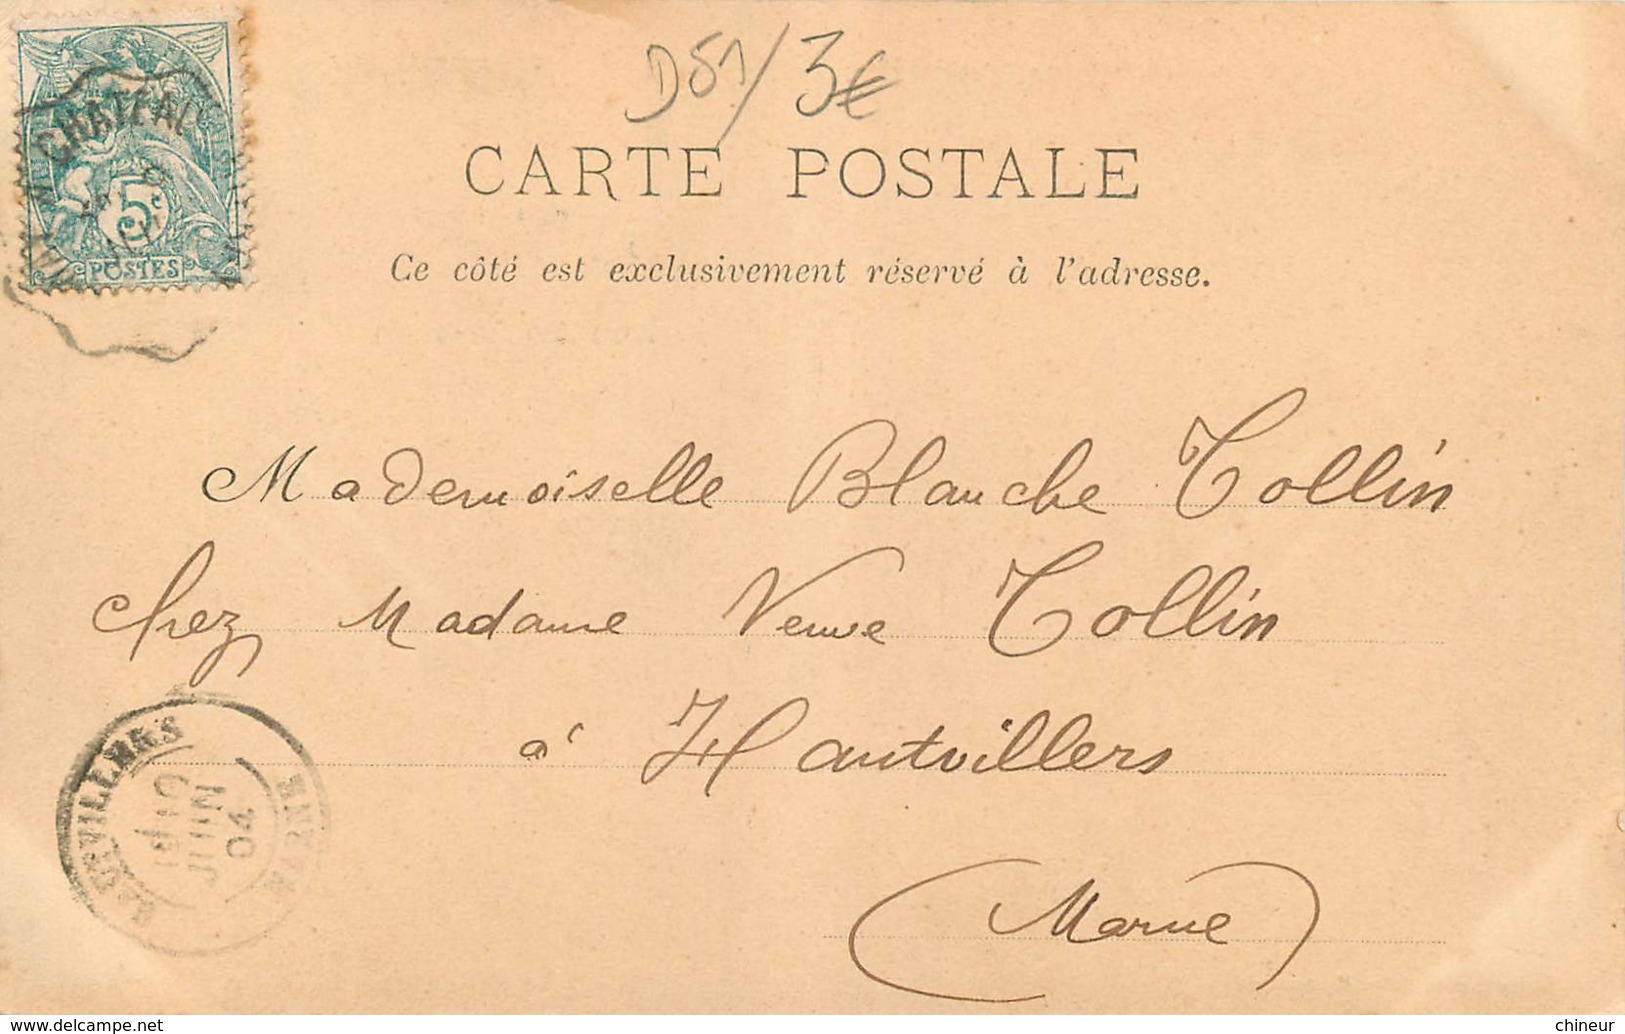 D51/3€
CHATEAU
5c
POSTES
CARTE POSTALE
Ce côté est exclusivement réservé à l'adresse.
Mademoiselle Blanche Collin
chez Madame Veuve Collin
à Hautvillers
(Marne)
HAUTVILLERS
JUIN
04
MARNE
delcampe.net
chineur